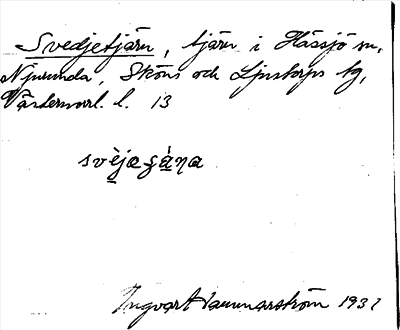 Svedjetjärn, tjärn i Hässjö sn,
Njurunda, Sköns och Ljustorps tg,
Västernorrl. l. 13
Ingvart Hammarström 1931